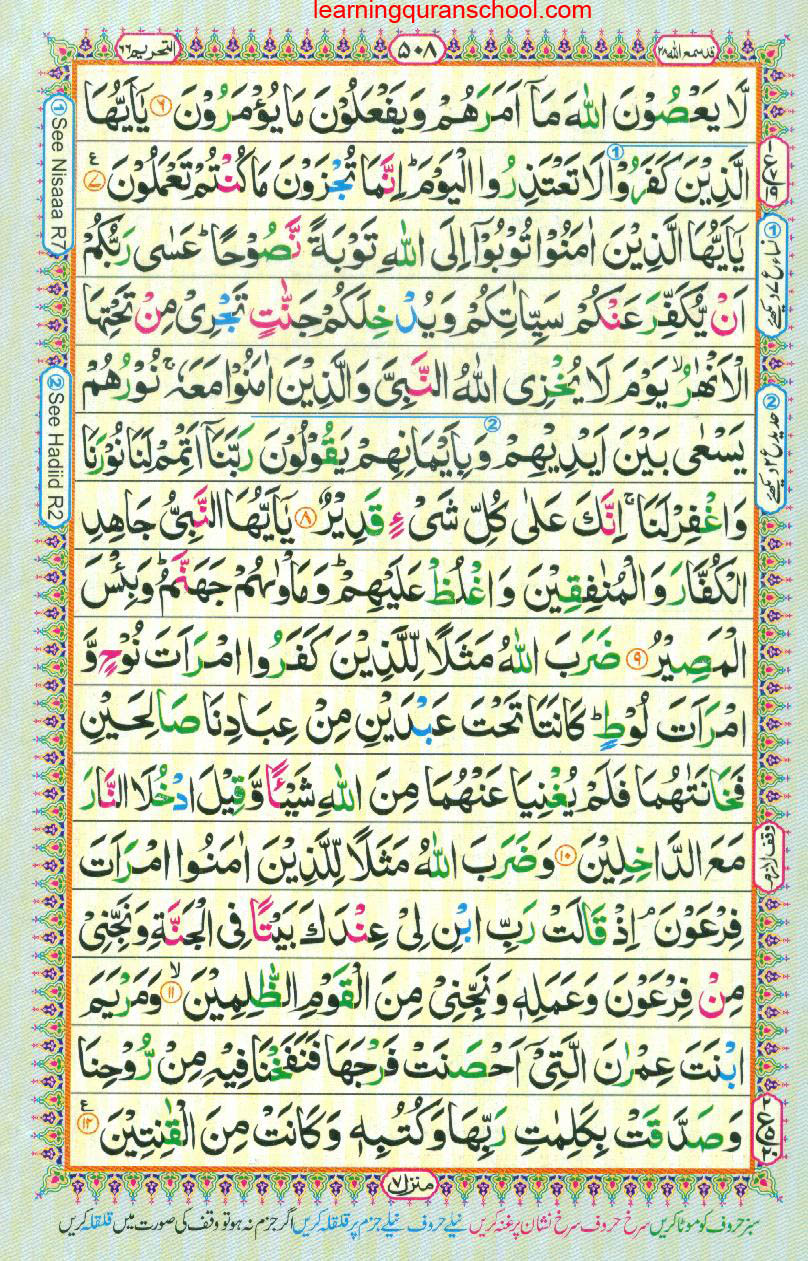 learningquranschool.com
التحريم ٦٦
٥٠٨
قد سمع الله ٢٨
لَّا يَعْصُوْنَ اللّٰهَ مَاۤ اَمَرَهُمْ وَيَفْعَلُوْنَ مَا يُؤْمَرُوْنَ ۶ يٰۤاَيُّهَا
الَّذِيْنَ كَفَرُوْا لَا تَعْتَذِرُوا الْيَوْمَ ؕ اِنَّمَا تُجْزَوْنَ مَا كُنْتُمْ تَعْمَلُوْنَ ۷
يٰۤاَيُّهَا الَّذِيْنَ اٰمَنُوْا تُوْبُوْۤا اِلَى اللّٰهِ تَوْبَةً نَّصُوْحًا ؕ عَسٰى رَبُّكُمْ
اَنْ يُّكَفِّرَ عَنْكُمْ سَيِّاٰتِكُمْ وَيُدْخِلَكُمْ جَنّٰتٍ تَجْرِيْ مِنْ تَحْتِهَا
الْاَنْهٰرُ ۙ يَوْمَ لَا يُخْزِى اللّٰهُ النَّبِيَّ وَالَّذِيْنَ اٰمَنُوْا مَعَهٗ ۚ نُوْرُهُمْ
يَسْعٰى بَيْنَ اَيْدِيْهِمْ وَبِاَيْمَانِهِمْ يَقُوْلُوْنَ رَبَّنَاۤ اَتْمِمْ لَنَا نُوْرَنَا
وَاغْفِرْ لَنَا ۚ اِنَّكَ عَلٰى كُلِّ شَيْءٍ قَدِيْرٌ ۸ يٰۤاَيُّهَا النَّبِيُّ جَاهِدِ
الْكُفَّارَ وَالْمُنٰفِقِيْنَ وَاغْلُظْ عَلَيْهِمْ ؕ وَمَاْوٰىهُمْ جَهَنَّمُ ؕ وَبِئْسَ
الْمَصِيْرُ ۹ ضَرَبَ اللّٰهُ مَثَلًا لِّلَّذِيْنَ كَفَرُوا امْرَاَتَ نُوْحٍ وَّ
امْرَاَتَ لُوْطٍ ؕ كَانَتَا تَحْتَ عَبْدَيْنِ مِنْ عِبَادِنَا صَالِحَيْنِ
فَخَانَتٰهُمَا فَلَمْ يُغْنِيَا عَنْهُمَا مِنَ اللّٰهِ شَيْـًٔا وَّقِيْلَ ادْخُلَا النَّارَ
مَعَ الدَّاخِلِيْنَ ۱۰ وَضَرَبَ اللّٰهُ مَثَلًا لِّلَّذِيْنَ اٰمَنُوا امْرَاَتَ
فِرْعَوْنَ ۘ اِذْ قَالَتْ رَبِّ ابْنِ لِيْ عِنْدَكَ بَيْتًا فِى الْجَنَّةِ وَنَجِّنِيْ
مِنْ فِرْعَوْنَ وَعَمَلِهٖ وَنَجِّنِيْ مِنَ الْقَوْمِ الظّٰلِمِيْنَ ۙ ۱۱ وَمَرْيَمَ
ابْنَتَ عِمْرٰنَ الَّتِيْۤ اَحْصَنَتْ فَرْجَهَا فَنَفَخْنَا فِيْهِ مِنْ رُّوْحِنَا
وَصَدَّقَتْ بِكَلِمٰتِ رَبِّهَا وَكُتُبِهٖ وَكَانَتْ مِنَ الْقٰنِتِيْنَ ۱۲
① See Nisaaa R7
② See Hadiid R2
① نساء ع ٧ دیکھئے
② حدید ع ٢ دیکھئے
وقف لازم
منزل ٧
سبز حروف کو موٹا کریں سرخ حروف سرخ نشان پر غنہ کریں نیلے حروف نیلے جزم پر قلقلہ کریں اگر جزم نہ ہو تو وقف کی صورت میں قلقلہ کریں